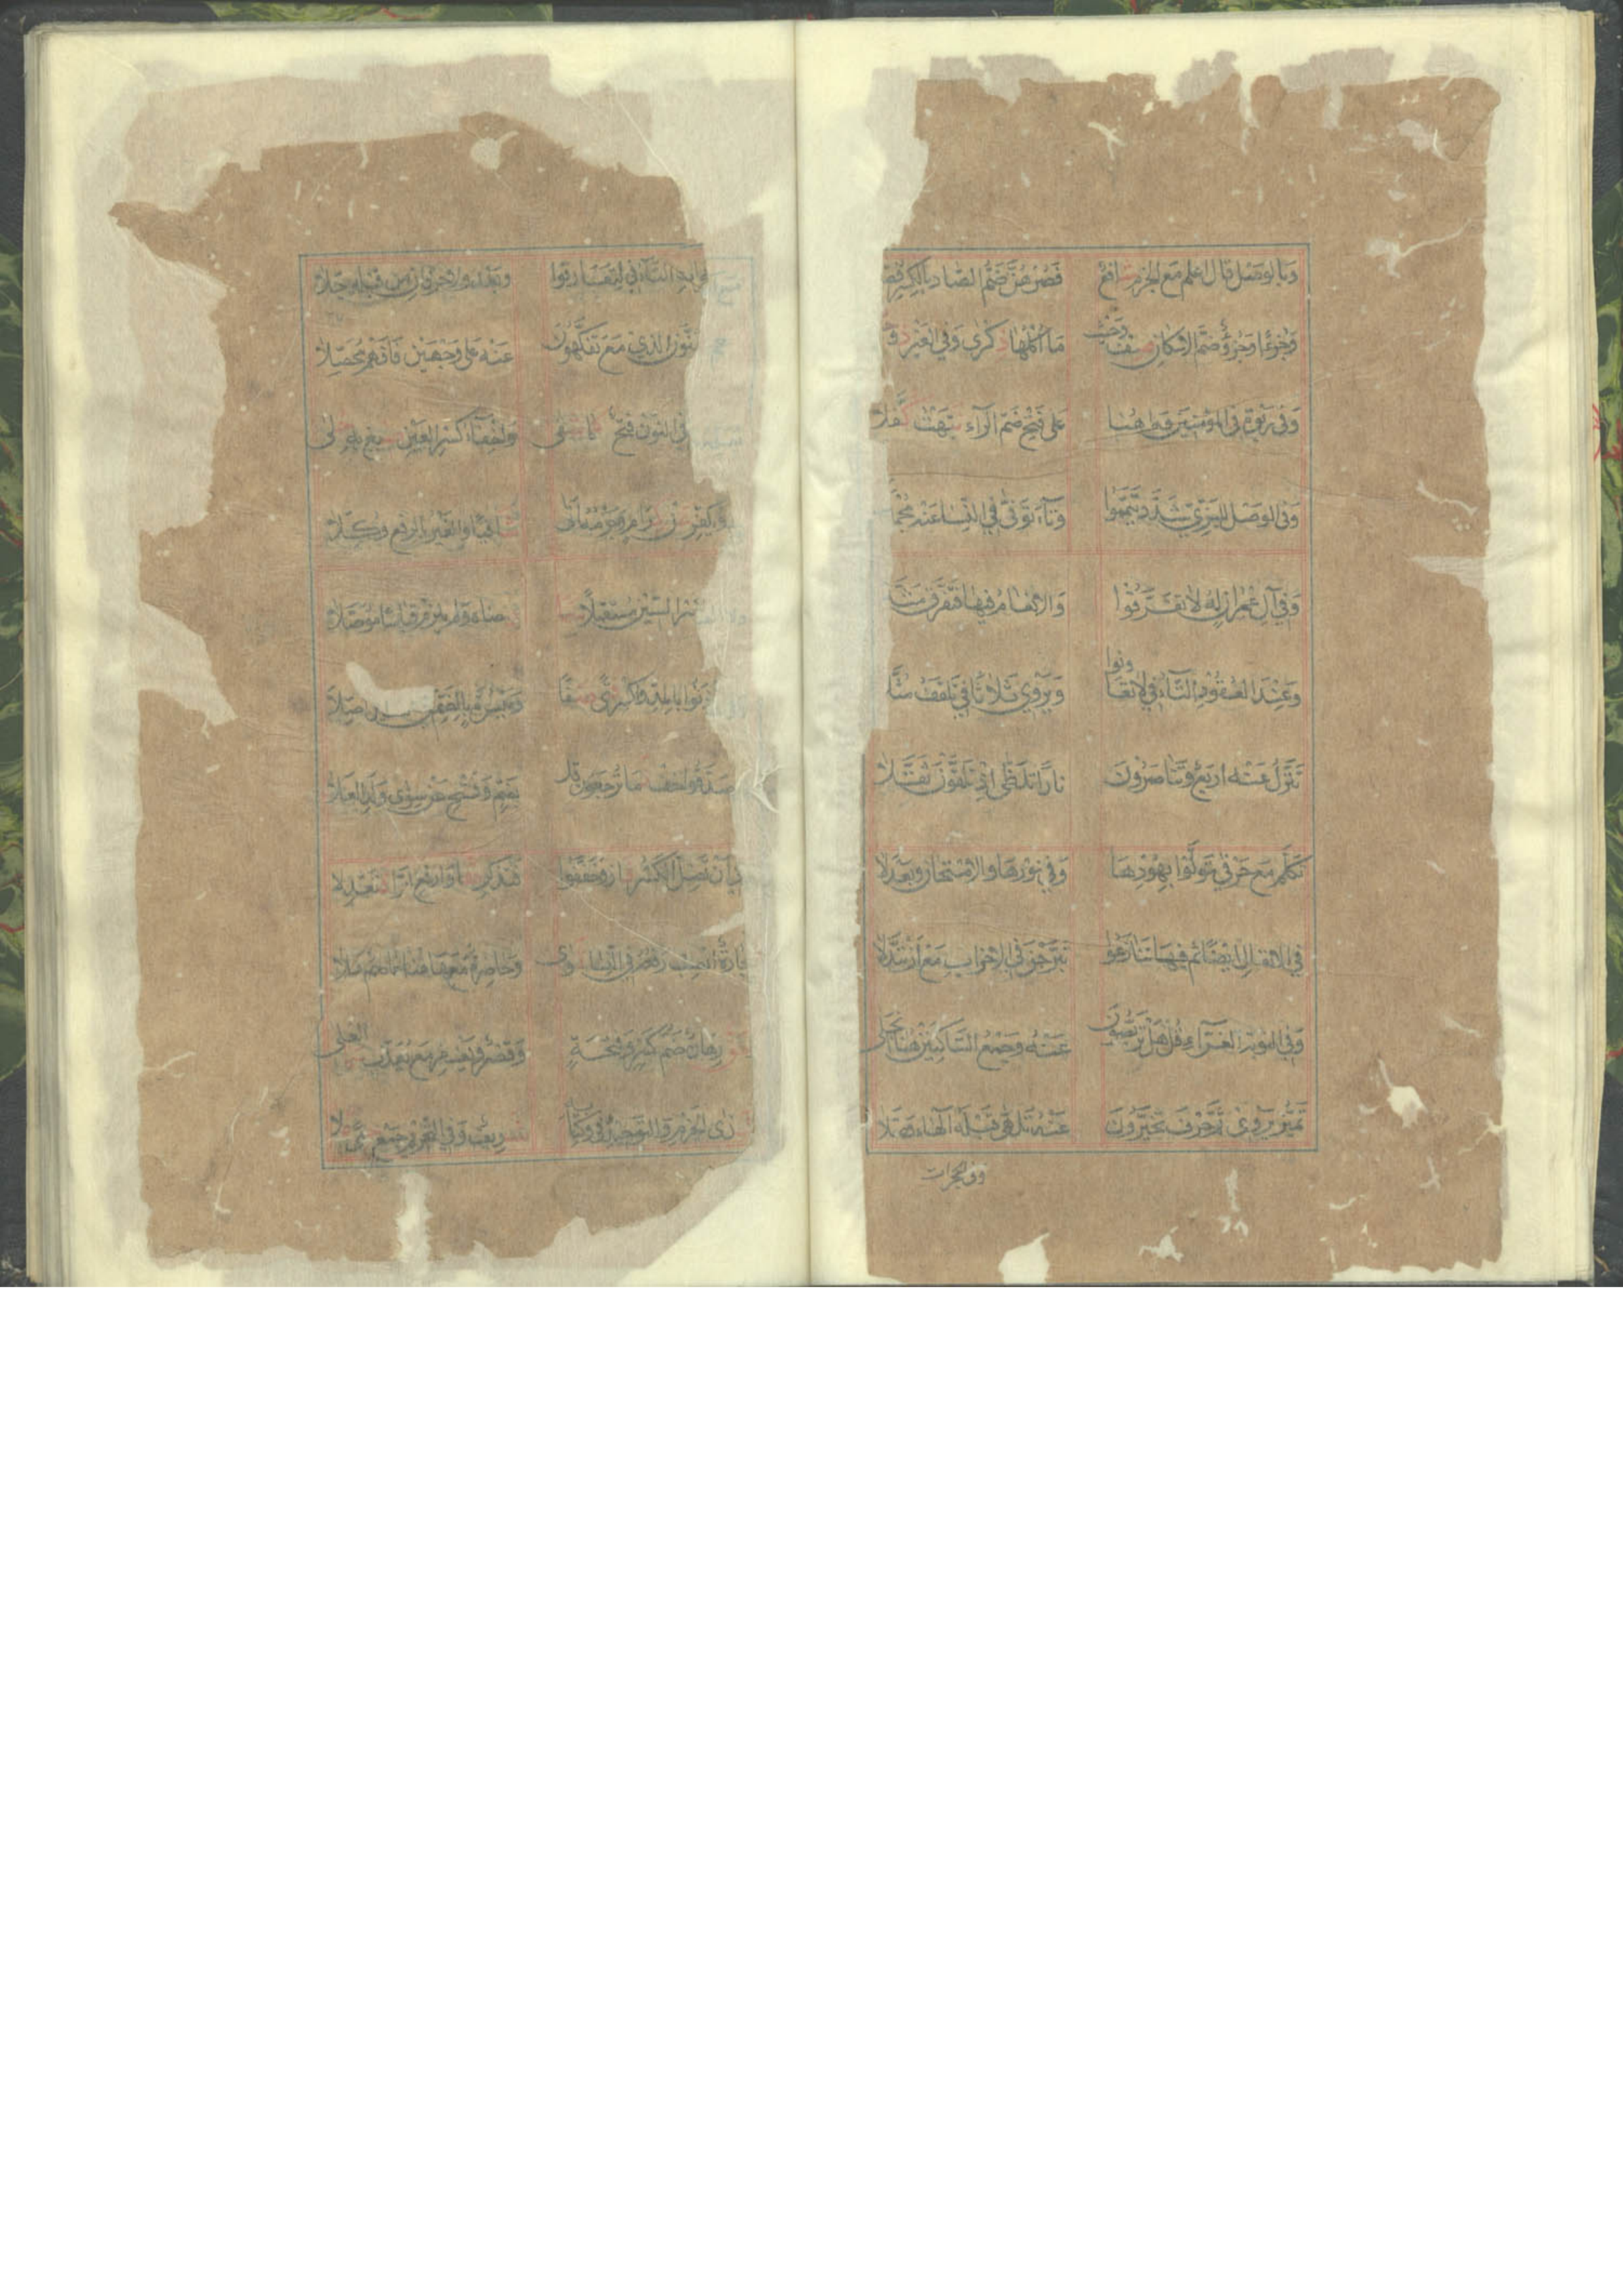 وَبِالوَصْلِ قَالَ اعْلَمْ مَعَ الجَزْمِ شَافِعٌ فَصُرْهُنَّ ضَمُّ الصَّادِ بِالكَسْرِ فُصِّ
وَجُزْءًا وَجُزْءٌ ضَمَّ الاِسْكَانَ صِفْ وَحَيْثُ مَا اُكْلُهَا ذِكْرَى وَفِي الغَيْرِ ذُو
وَفِي رَبْوَةٍ فِي المُؤْمِنِينَ وَهٰهُنَا عَلَى فَتْحِ ضَمِّ الرَّآءِ نَبَّهْتُ كُفَّلَا
وَفِي الوَصْلِ لِلْبَزِّيِّ شَدِّدْ تَيَمَّمُوا وَتَآءَ تَوَفَّى فِي النِّسَا عَنْهُ مُجْمِ
وَفِي آلِ عِمْرَانَ لَهُ لَا تَفَرَّقُوا وَالاَنْعَامُ فِيهَا فَتَفَرَّقَ مَثَّ
وَعِنْدَ العُقُودِ التَّآءُ فِي لَا تَعَاوَنُوا وَيَرْوِي ثَلَاثًا فِي تَلَقَّفُ مُثَّ
تَنَزَّلُ عَنْهُ اَرْبَعٌ وَتَنَاصَرُونَ نَارًا تَلَظَّى اِذْ تَلَقَّوْنَ ثَقَّلَا
تَكَلَّمُ مَعَ حَرْفَيْ تَوَلَّوْا بِهُودِهَا وَفِي نُورِهَا وَالاِمْتِحَانِ وَبَعْدَ لَا
فِي الاَنْفَالِ اَيْضًا ثُمَّ فِيهَا تَنَازَعُوا تَبَرَّجْنَ فِي الاَحْزَابِ مَعْ اَنْ تَبَدَّلَا
وَفِي التَّوْبَةِ الغَرَّآءِ قُلْ هَلْ تَرَبَّصُونَ عَنْهُ وَجَمْعُ السَّاكِنَيْنِ هُنَا انْجَلَى
تَمَيَّزُ يَرْوِي ثُمَّ حَرْفَ تَخَيَّرُونَ عَنْهُ تَلَهَّى قَبْلَهُ الهَاءَ وَصَّلَا
وفي الحجرات
التَّآءُ فِي لِتَعَارَفُوا وَبَعْدَ وَلَا حَرْفَانِ مِنْ قَبْلِهِ جَلَا
الَّذِي مَعْ تَفَكَّهُونَ عَنْهُ عَلَى وَجْهَيْنِ فَافْهَمْ مُحَصِّلَا
فِي النُّونِ فَتْحٌ كَمَا شَفَى وَاِخْفَآءُ كَسْرِ العَيْنِ صِيغَ بِهِ حُلَى
وَيُكَفِّرْ عَنْ كِرَامٍ وَجَزْمُهُ اَتَى شَافِيًا وَالغَيْرُ بِالرَّفْعِ وُكِّلَا
كَسْرُ السِّينِ مُسْتَقْبَلًا سَمَا رِضَاهُ وَلَمْ يَلْزَمْ قِيَاسًا مُؤَصَّلَا
فَأْذَنُوا بِالمَدِّ وَاكْسِرْ فَتًى صَفَا وَمَيْسُرَةٍ بِالضَّمِّ فِي السِّينِ اُصِّلَا
وَتَصَّدَّقُوا خِفٌّ نَمَا تُرْجَعُونَ قُلْ بِضَمٍّ وَفَتْحٍ عَنْ سِوَى وَلَدِ العَلَا
اَنْ تَضِلَّ الكَسْرُ فَازَ وَخَفَّفُوا فَتُذْكِرَ حَقًّا وَارْفَعِ الرَّا فَتَعْدِلَا
تِجَارَةٌ انْصِبْ رَفْعَهُ فِي النِّسَا ثَوَى وَحَاضِرَةٌ مَعْهَا هُنَا عَاصِمٌ تَلَا
رِهَانٍ ضَمُّ كَسْرٍ وَفَتْحَةٍ وَقَصْرٌ وَيَغْفِرْ مَعْ يُعَذِّبْ سَمَا العُلَى
شَذَى الجَزْمِ وَالتَّوْحِيدُ فِي وَكِتَابِهِ شَرِيفٌ وَفِي التَّحْرِيمِ جَمْعُ حِمًى عَلَا